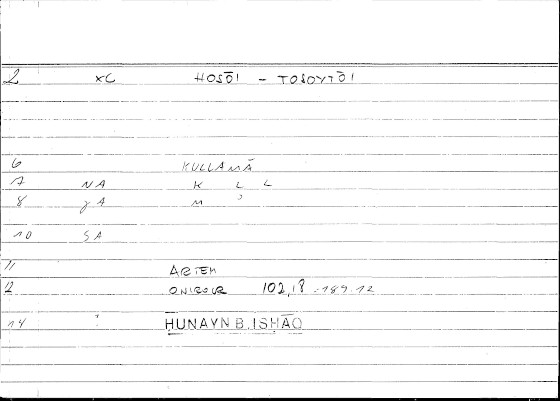 2 XC HOSŌI - TOSOYTŌI
6 KULLAMĀ
7 NA K L L
8 yA M ʾ
10 SA
11 ARTEM
12 ONIROCR 102,18 - 189.12
14 : ḤUNAYN B. ISḤĀQ